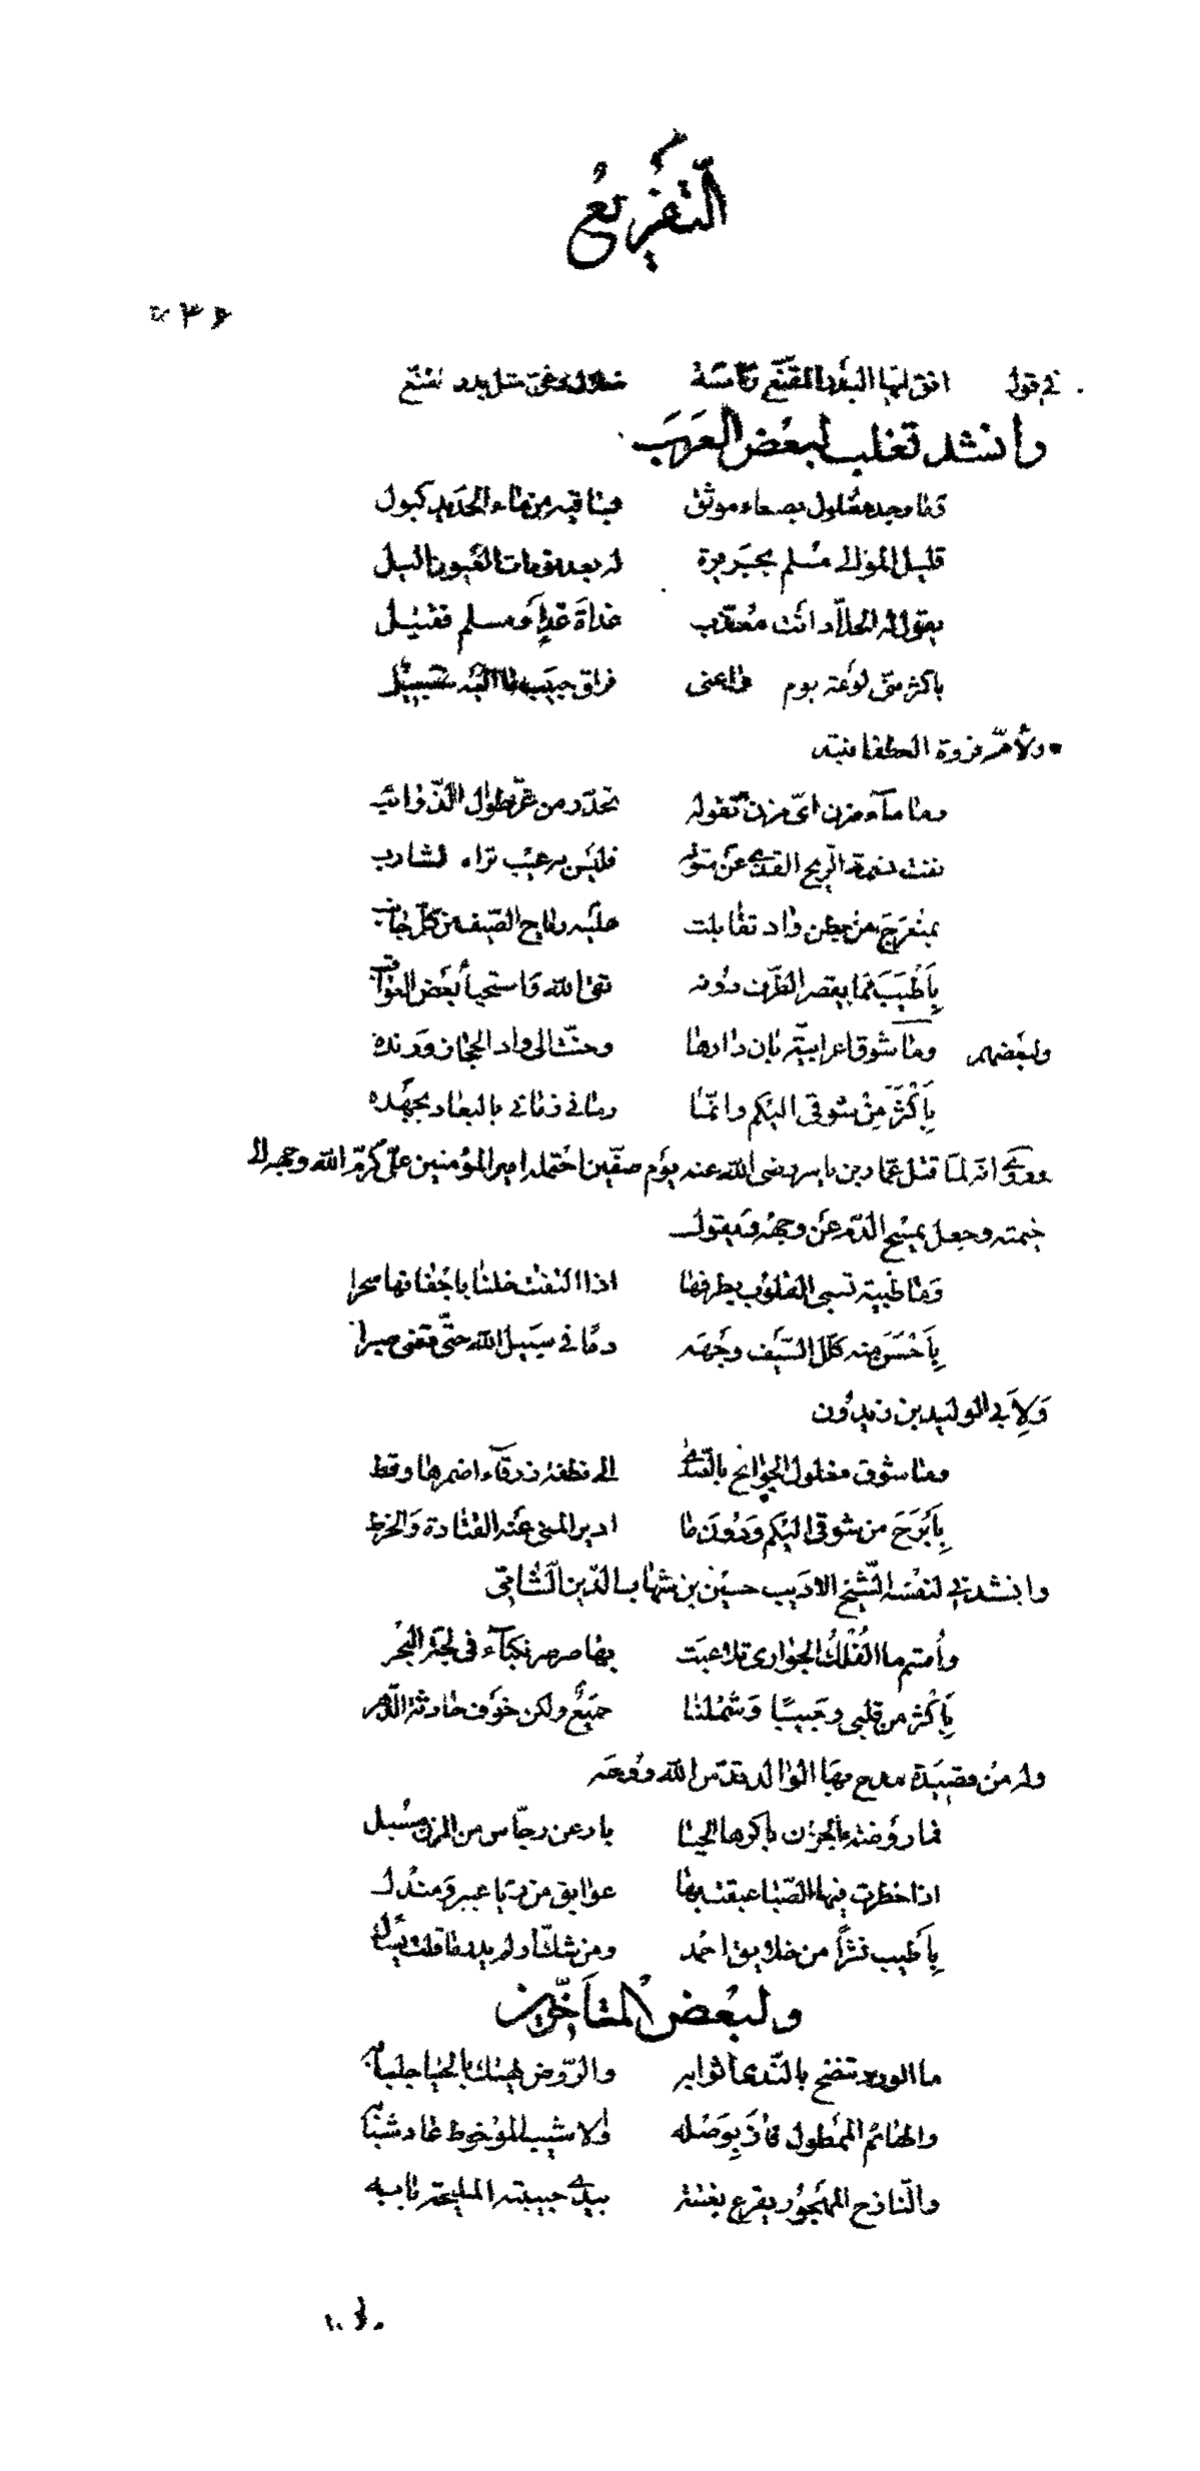 التفريع
في قول افق انما البدر المقنع رأسه ضلال وغي مثل بدر المقنع
وانشد تغلب لبعض العرب
فما وجد مغلول بصنعاء موثق بساقيه من ماء الحديد كبول
قليل الموالي مسلم بجريرة له بعد نومات العيون اليل
يقول له الحداد انت معذب غداة غد او مسلم فقتيل
باكثر مني لوعة يوم راعني فراق حبيب ما اليه سبيل
ولام فروة الغطفانية
وما ماء مزن اي مزن تقوله تحدر من غر طوال الذوائب
نفت نسمة الريح القذى عن متونه فليس به عيب تراه لشارب
بمنعرج من بطن واد تقابلت عليه رياح الصيف من كل جانب
باطيب مما يقصر الطرف دونه تقى الله واستحيا بعض العواقب
ولبعضهم وما شوق اعرابية بان دارها وحنت الى واد الحجاز ورنده
باكثر من شوقي اليكم وانما رماني زماني بالبعاد بجهده
وحكي انه لما قتل عمار بن ياسر رضى الله عنه يوم صفين احتمله امير المؤمنين علي كرم الله وجهه الى
خيمته وجعل يمسح الدم عن وجهه ويقول
وما ظبية تسبي القلوب بطرفها اذا التفتت خلنا باجفانها سحرا
باحسن منه كلل السيف وجهه دما في سبيل الله حتى قضى صبرا
ولابي الوليد بن زيدون
وما شوق مغلول الجوانح بالصدى الى نطفة زرقاء اضمرها وقط
بابرح من شوقي اليكم ودون ما ادير المنى عنه القتادة والخرط
وانشدني لنفسه الشيخ الاديب حسين بن شهاب الدين الشامي
واقسم ما الفلك الجواري تلاعبت بها صرصر نكباء في لجة البحر
باكثر من قلبي وجيبا وشملنا جميع ولكن خوف حادثة الدهر
وله من قصيدة مدح بها الوالد قدس الله روحه
فما روضة بالحزن باكرها الحيا بارعن رجاس من المزن مسبل
اذا خطرت فيها الصبا عبقت بها عوابق من ريا عبير ومندل
باطيب نشرا من خلايق احمد ومن شك او لم يدر ما قلت يسأل
ولبعض المتأخرين
ما الورد تنضح بالندى اثوابه والروض هينك بالحيا جلبابه
والهائم الممطول فاز بوصله ولا شيب الموخوط عاد شبابه
والنازح المهجور يقرع بغتة بيدي حبيبته المليحة بابه